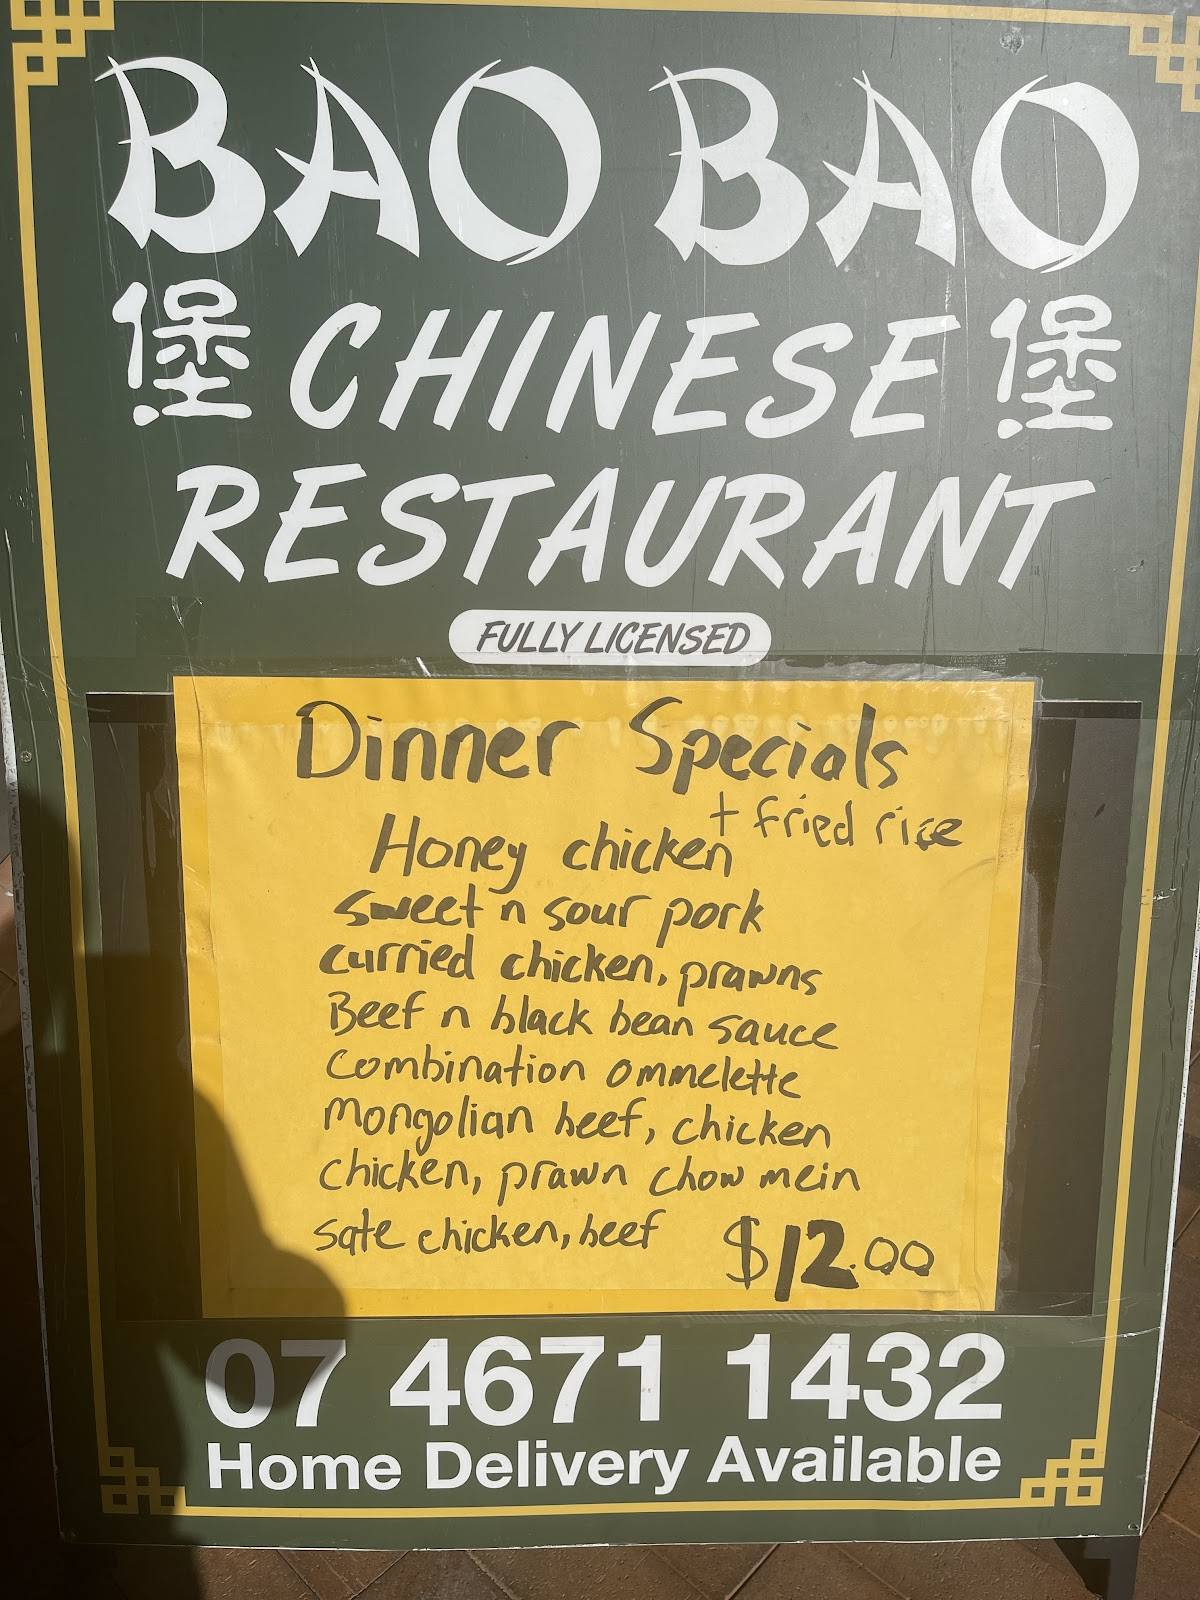 BAO BAO
堡 CHINESE 堡
RESTAURANT
FULLY LICENSED
Dinner Specials
+ fried rice
Honey chicken
sweet n sour pork
curried chicken, prawns
Beef n black bean sauce
combination ommelette
mongolian beef, chicken
chicken, prawn chow mein
sate chicken, beef $12.00
07 4671 1432
Home Delivery Available